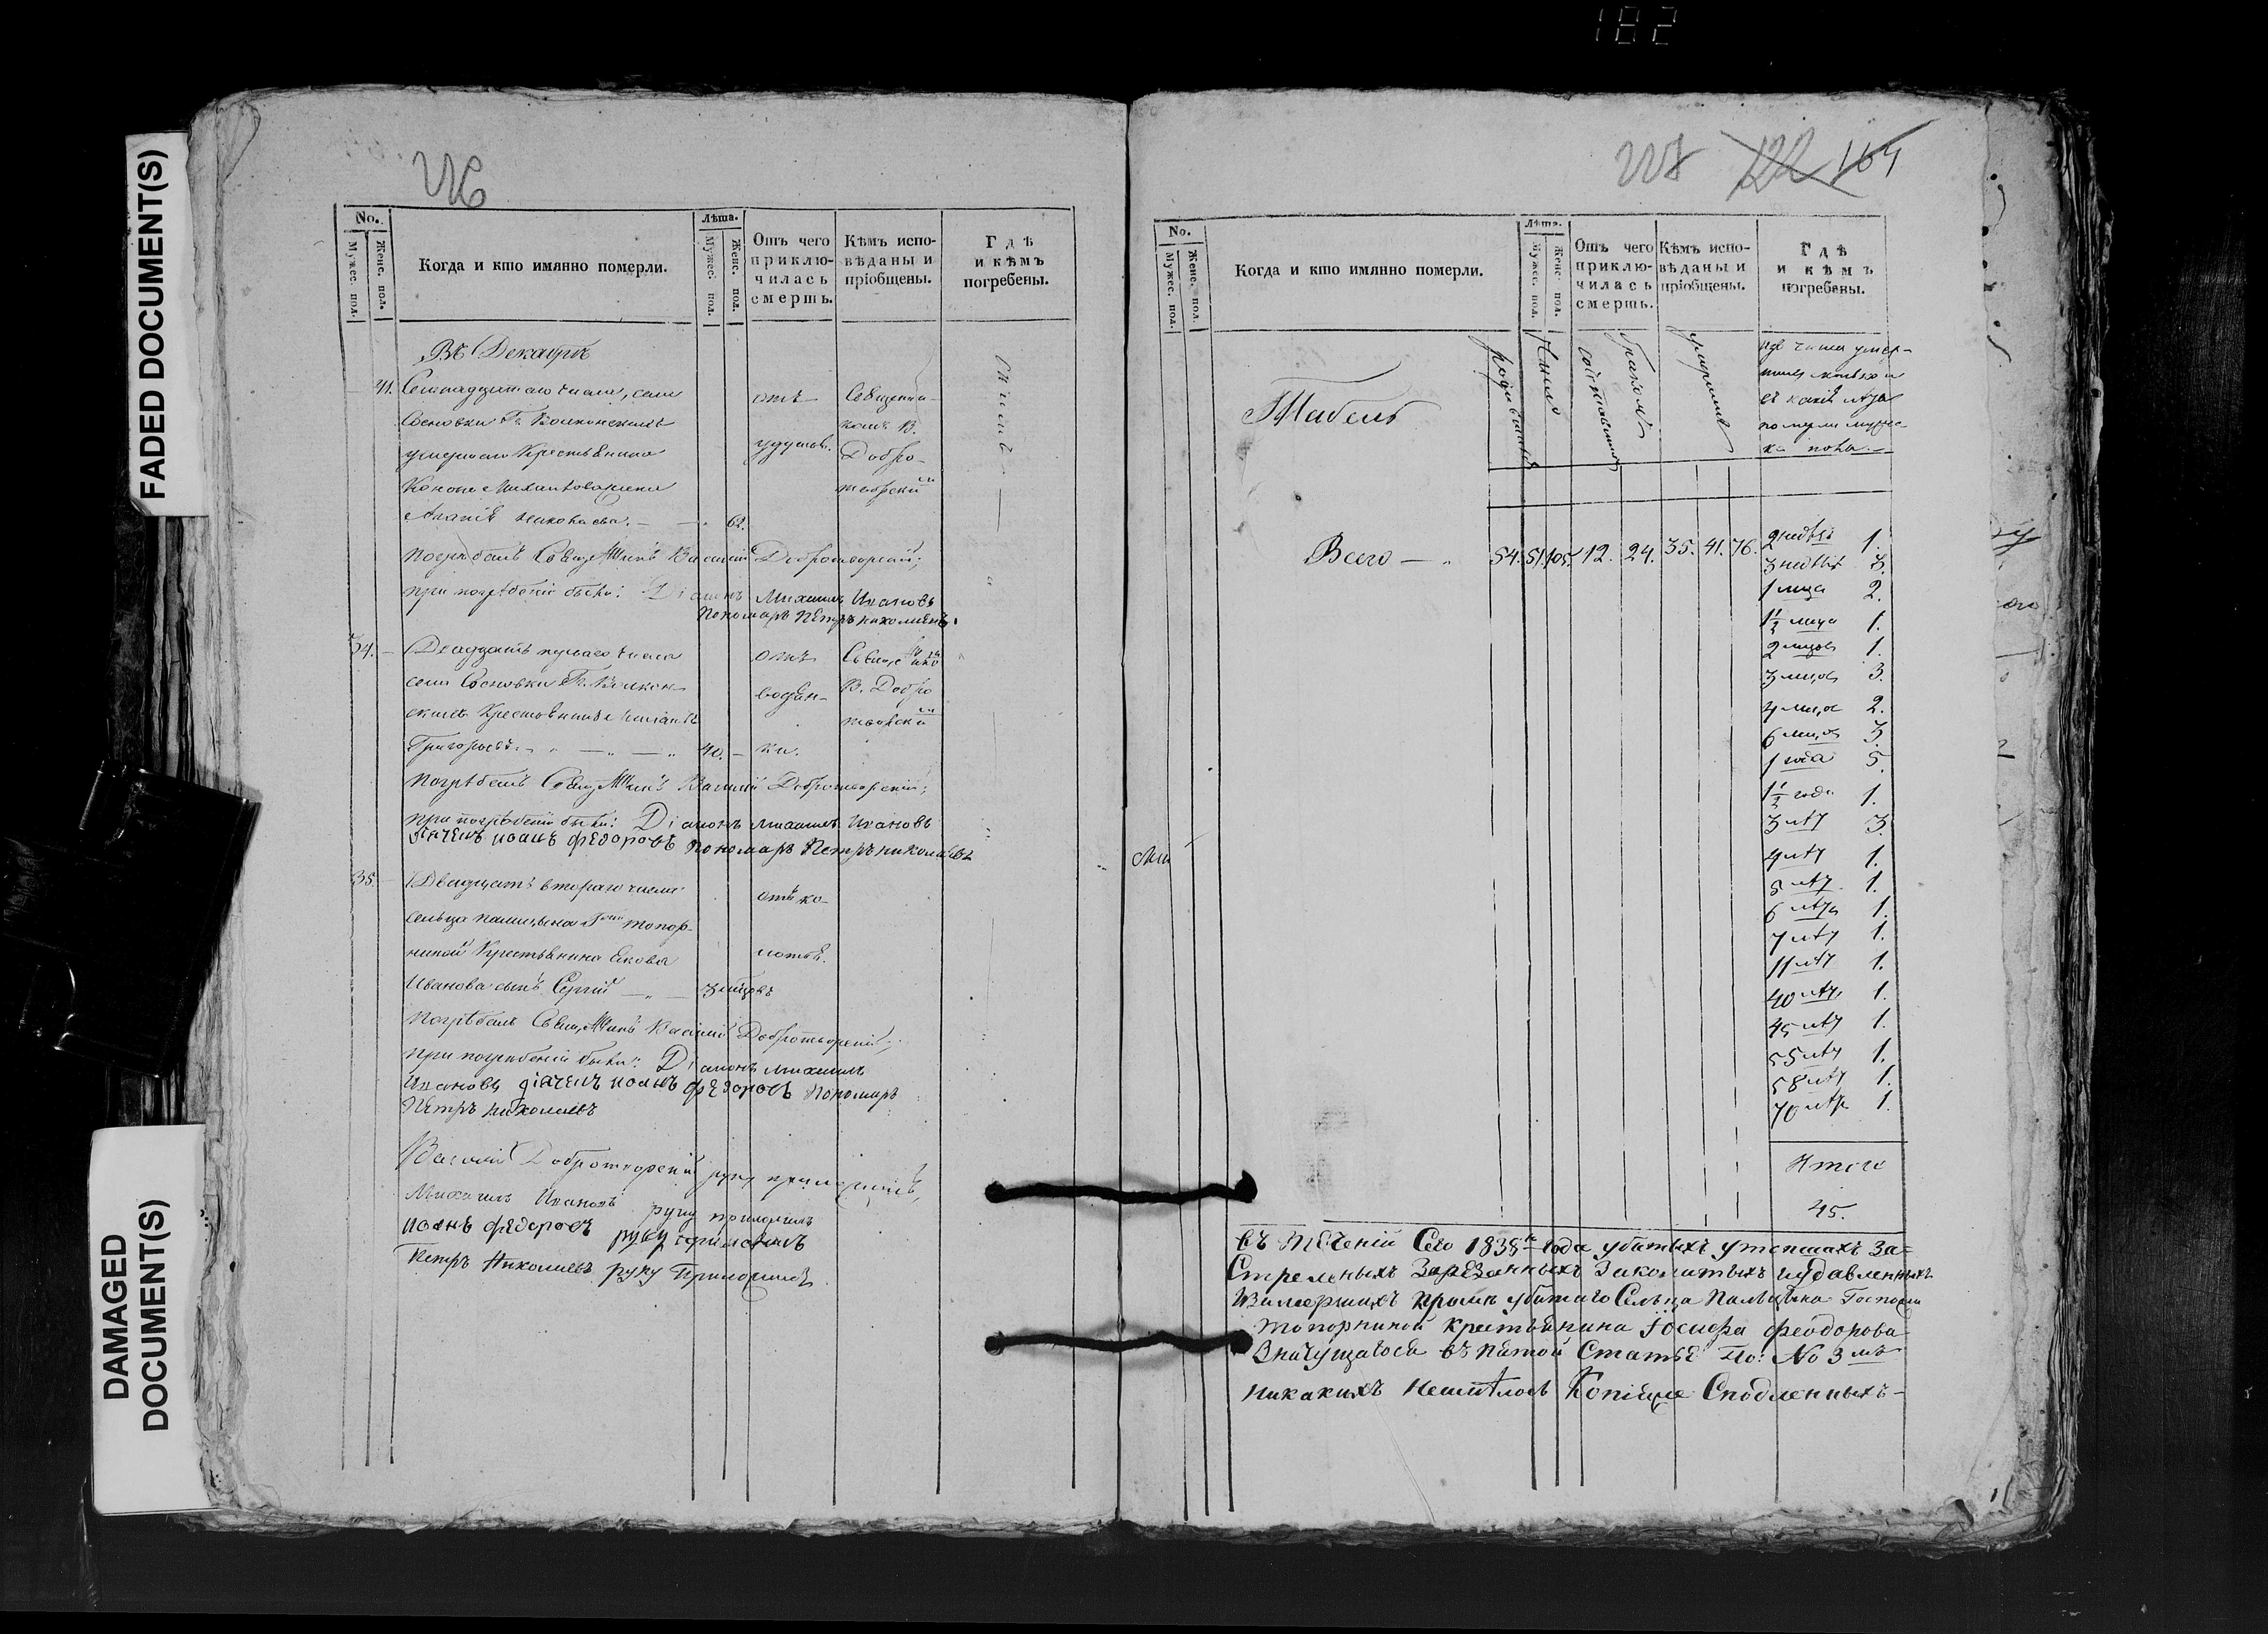 182
FADED DOCUMENT(S)
DAMAGED
DOCUMENT(S)
No.
Мужес. пол.
Женс. пол.
Когда и кто имянно померли.
Лѣта.
Мужес. пол.
Женс. пол.
Отъ чего
приклю-
чилась
смерть.
Кѣмъ испо-
вѣданы и
пріобщены.
Гдѣ
и кѣмъ
погребены.
Въ Декабрѣ
41. числа, села
Сосновки Гг. Волконскихъ
умершаго Крестьянина
Николаева. 62.
отъ
удушья.
Священни-
комъ В.
Добро-
творским
Погребалъ Священникъ Василій Добротворскій;
при погребеніи были: Діаконъ Михаилъ Ивановъ
Пономарь Петръ Николаевъ.
34. Двадцать перваго числа
села Сосновки Гг. Волкон-
скихъ Крестьянинъ
Григорьевъ. 40.
отъ
водян-
ки.
Священико
В. Добро
творски
Погребалъ Священникъ Василій Добротворскій;
при погребеніи были: Діаконъ Михаилъ Ивановъ
Дячекъ иоанъ федоровъ Пономарь Петръ николаевъ
35. Двадцать втораго числа
сельца Гжи топор-
ниной Крестьянина Якова
Иванова сынъ Сергій 3 мцовъ
отъ ко-
лотья.
Погребалъ Священникъ Василій Добротворскій;
при погребеніи были: Діаконъ михаилъ
Ивановъ діячекъ иоанъ федоровъ Пономарь
Петръ николаевъ
Василій Добротворскій руку приложилъ,
Михаилъ Ивановъ руку приложилъ
иоанъ федоровъ руку приложилъ
Петръ Николаевъ руку Приложилъ
122 164
No.
Мужес. пол.
Женс. пол.
Когда и кто имянно померли.
Лѣта.
Мужес. пол.
Женс. пол.
Отъ чего
приклю-
чилась
смерть.
Кѣмъ испо-
вѣданы и
пріобщены.
Гдѣ
и кѣмъ
погребены.
Табель
Число
родившихся
умершихъ
изъ числа умер-
въ какія лѣта
померли мужес-
ка пола.
Всего 54. 51. 105. 12. 24. 35. 41. 76.
2 недѣль 1.
3 недѣль 3.
1 мца 2.
1½ мца 1.
2 мцовъ 1.
3 мцов 3.
4 мцов 2.
6 мцов 3.
1 года 5.
1½ года 1.
3 лѣтъ 3.
4 лѣтъ 1.
5 лѣтъ 1.
6 лѣтъ 1.
7 лѣтъ 1.
11 лѣтъ 1.
40 лѣтъ 1.
45 лѣтъ 1.
55 лѣтъ 1.
58 лѣтъ 1.
70 лѣтъ 1.
Итого
45.
въ теченіи Сего 1835го года убитыхъ утопшихъ за=
стреленыхъ Зарезанныхъ удавленныхъ
кромѣ убитаго Сельца Госпожи
топорниной крестьянина Іосифа феодорова
Значущагося въ пятой Статьѣ По: No 3мъ
никакихъ неимѣлось